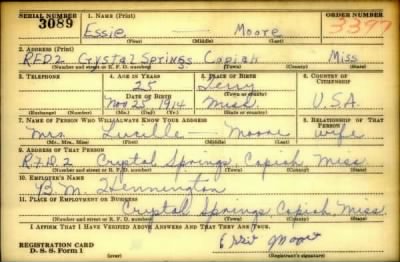 SERIAL NUMBER 1. NAME (Print) ORDER NUMBER
3089 Essie — Moore 3397
(First) (Middle) (Last)
2. ADDRESS (Print)
RFD2 Crystal Springs Copiah Miss
(Number and street or R. F. D. number) (Town) (County) (State)
3. TELEPHONE 4. AGE IN YEARS 5. PLACE OF BIRTH 6. COUNTRY OF CITIZENSHIP
25 Terry
(Town or county)
DATE OF BIRTH
Nov 25 1914 Miss. U.S.A.
(Exchange) (Number) (Mo.) (Day) (Yr.) (State or country)
7. NAME OF PERSON WHO WILL ALWAYS KNOW YOUR ADDRESS 8. RELATIONSHIP OF THAT PERSON
Mrs. Lucille — Moore wife
(Mr., Mrs., Miss) (First) (Middle) (Last)
9. ADDRESS OF THAT PERSON
R.F.D. 2 Crystal Springs, Copiah, Miss.
(Number and street or R. F. D. number) (Town) (County) (State)
10. EMPLOYER'S NAME
B. M. Hennington
11. PLACE OF EMPLOYMENT OR BUSINESS
Crystal Springs, Copiah, Miss.
(Number and street or R. F. D. number) (Town) (County) (State)
I AFFIRM THAT I HAVE VERIFIED ABOVE ANSWERS AND THAT THEY ARE TRUE.
REGISTRATION CARD
D. S. S. Form 1 Moore
(Registrant's signature)